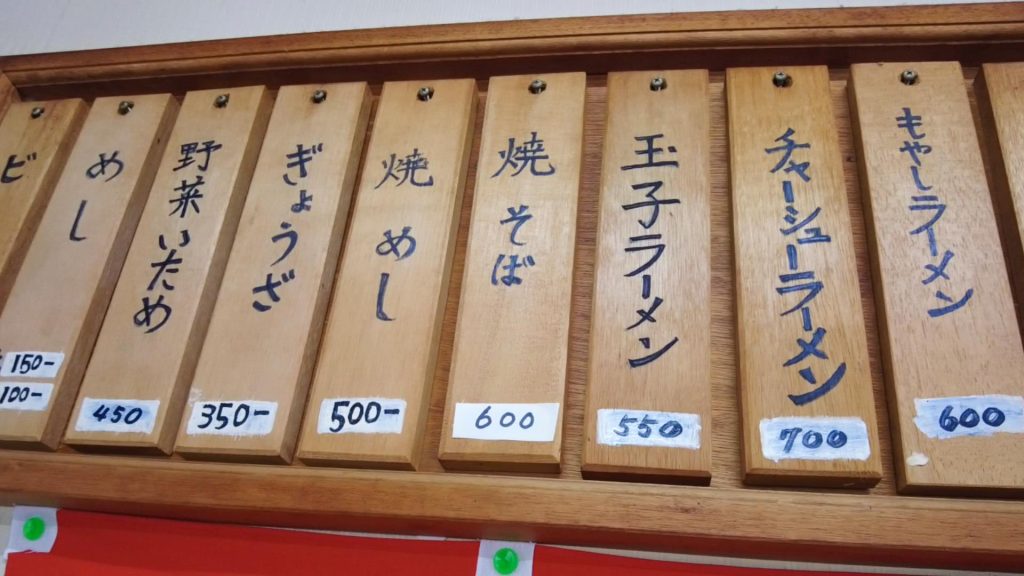 もやしラーメン
600
チャーシューラーメン
700
玉子ラーメン
550
焼そば
600
焼めし
500-
ぎょうざ
350-
野菜いため
450
めし
150-
100-
ビ